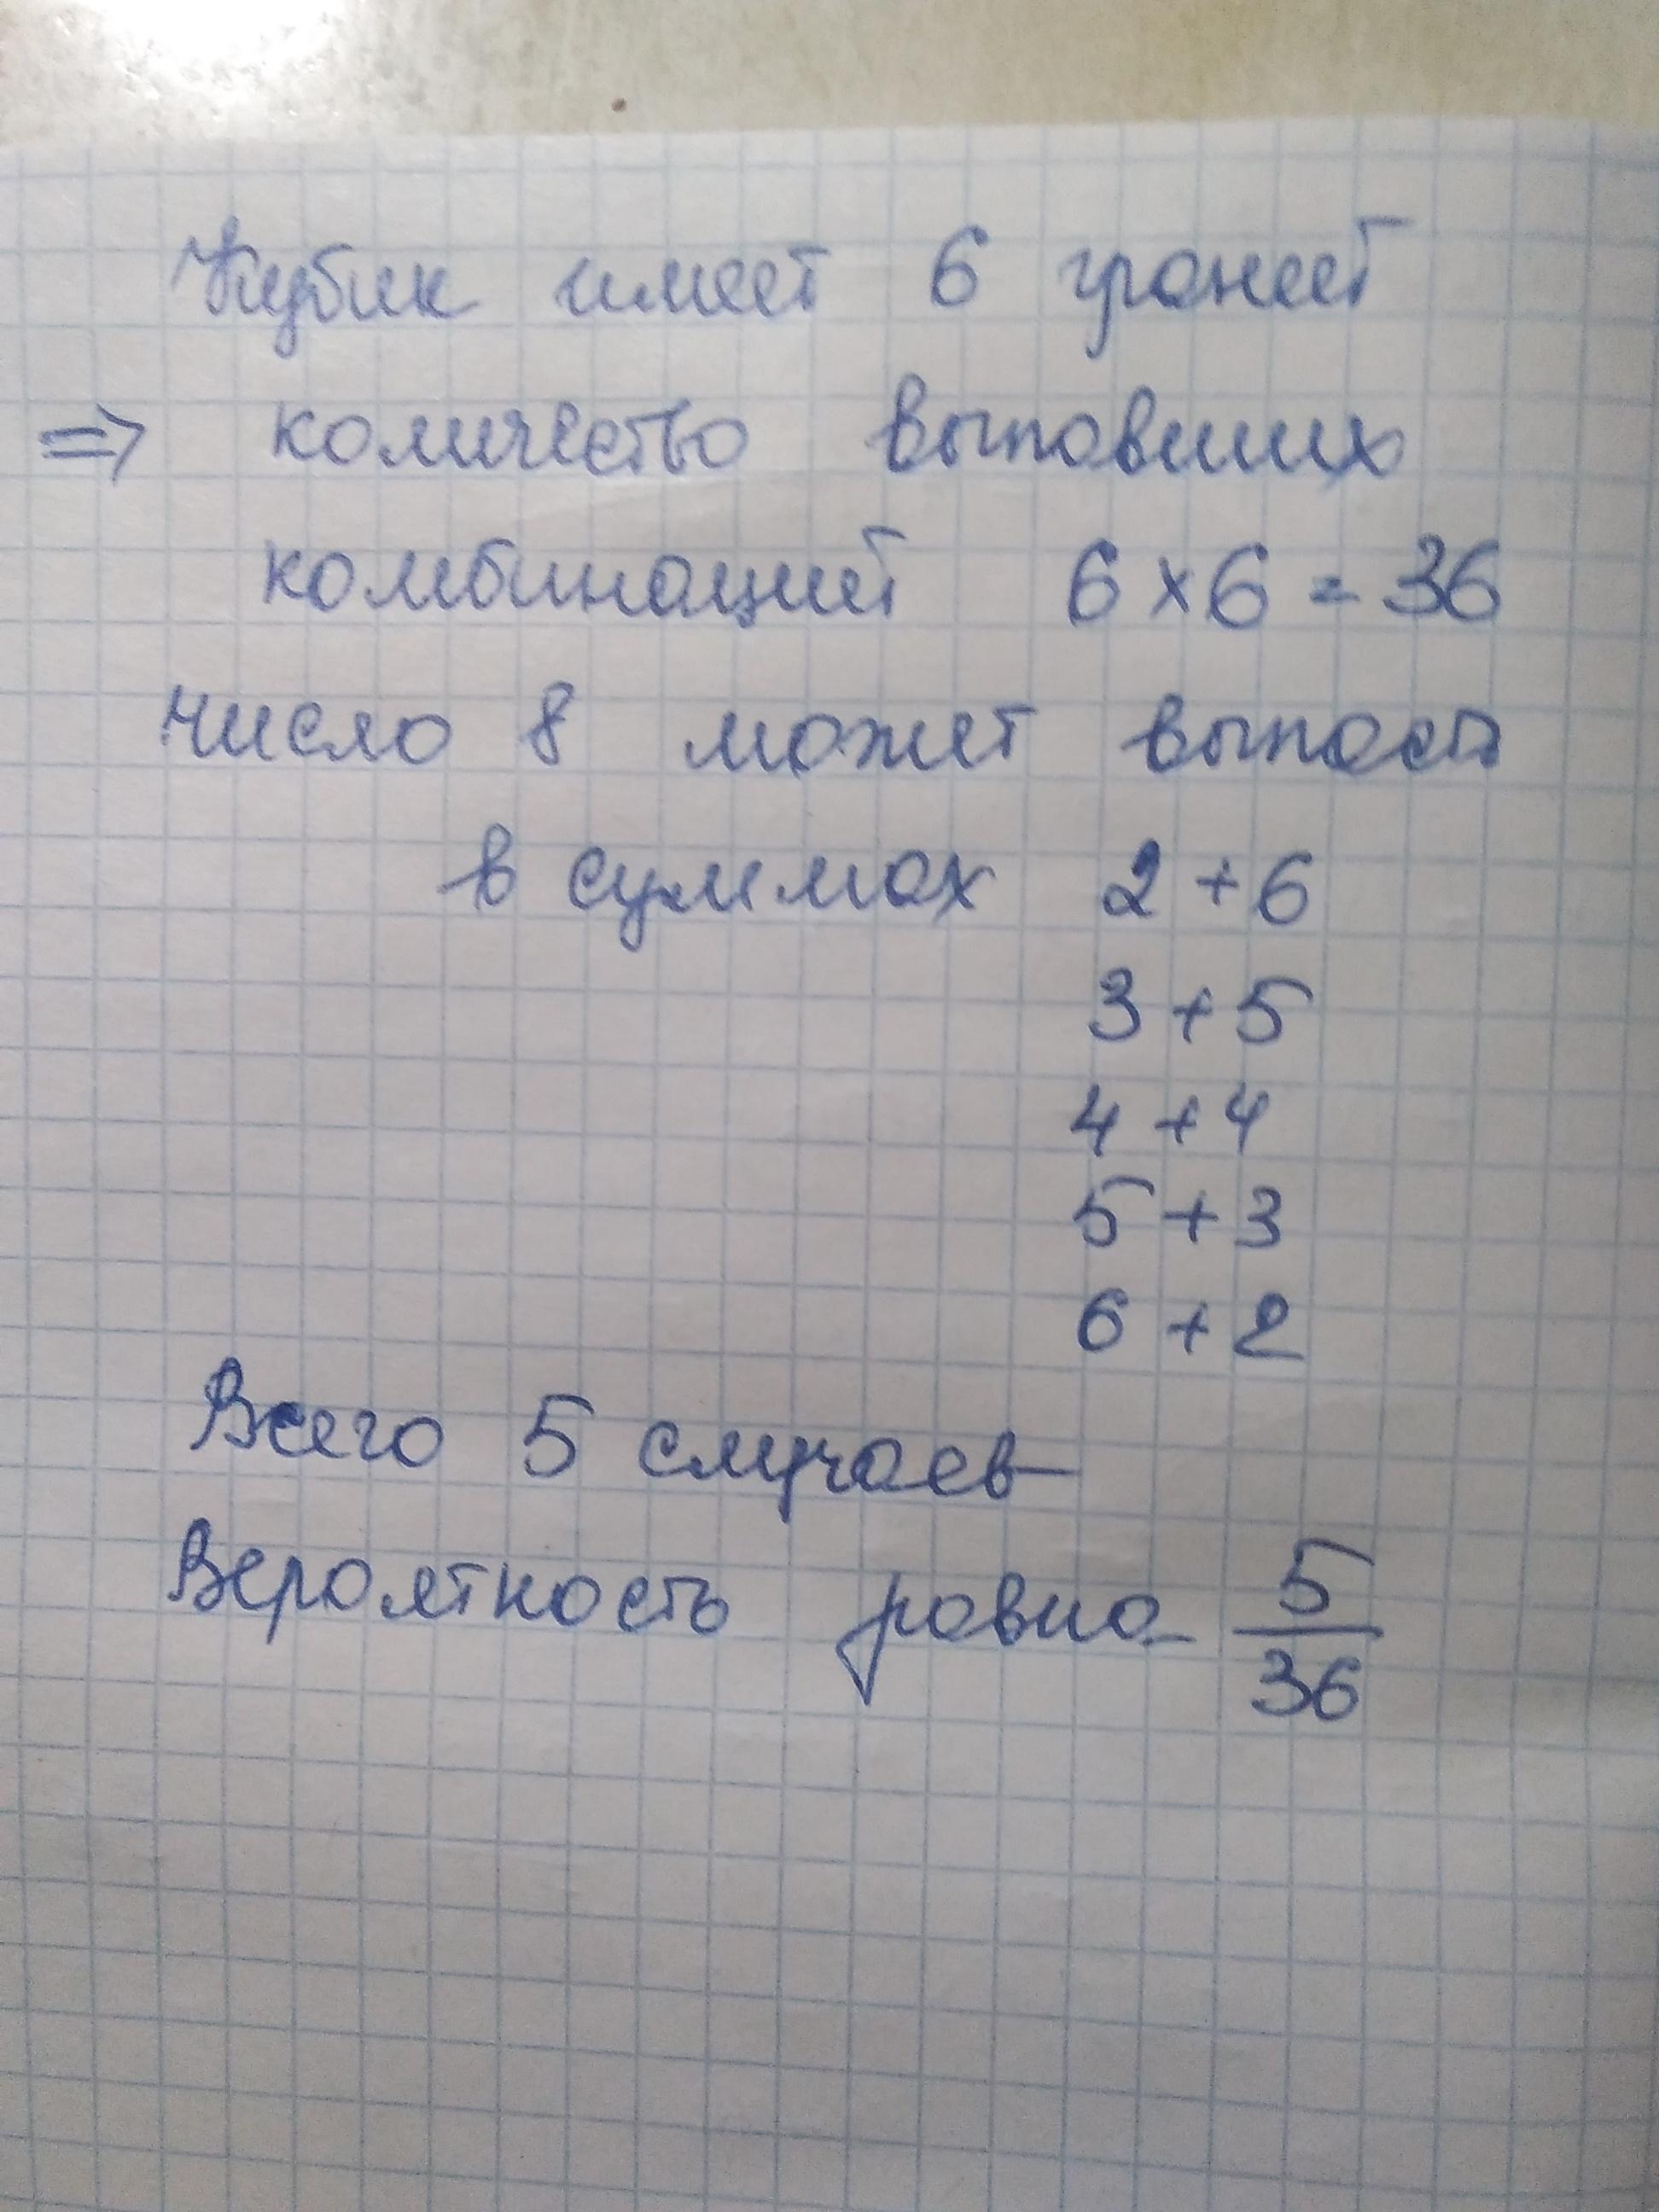 Кубик имеет 6 граней
⇒ количество выпавших
комбинаций 6 × 6 = 36
число 8 может выпасть
в суммах 2 + 6
3 + 5
4 + 4
5 + 3
6 + 2
Всего 5 случаев
Вероятность равна 5/36